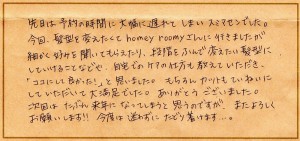 先日は予約の時間に大幅に遅れてしまいスミマセンでした。
今回、髪型を変えたくてhomey roomyさんに行きましたが
細かく好みを聞いてもらえたり、段階をふんで変えたい髪型に
していけることなどや、自宅でのケアの仕方も教えていただき、
"ココにして良かった!"と思いました。もちろんカットもていねいに
していただいて大満足でした。ありがとうございました。
次回はたぶん来年になってしまうと思うのですが、またよろしく
お願いします!! 今度は迷わずにたどり着けます…。